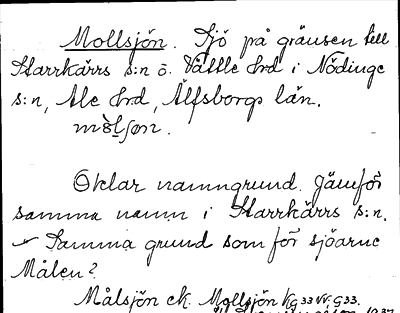 Mollsjön. Sjö på gränsen till
Starrkärrs s:n o. Vättle hrd i Nödinge
s:n, Ale hrd, Älfsborgs län.
Oklar namngrund. Jämför
samma namn i Starrkärrs s:n.
Samma grund som för sjöarne
Målen?
Målsjön ek. Mollsjön KG 33 VV. G33.